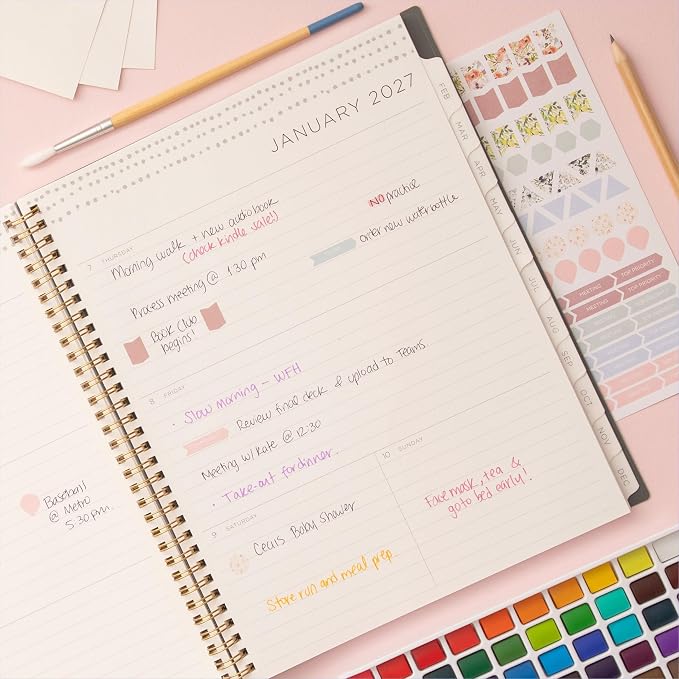 JANUARY 2027
7 THURSDAY
Morning walk + new audiobook
(check kindle sale!)
Process meeting @ 1:30 pm
Book Club
begins!
NO practice
order new water bottle
8 FRIDAY
• Slow morning - WFH
Review final deck & upload to Teams
Meeting w/ Kate @ 12:30
• Take-out for dinner.
9 SATURDAY
Cecis Baby Shower
Store run and meal prep...
10 SUNDAY
Face mask, tea &
go to bed early!
Baseball
@ Metro
5:30 pm.
FEB
MAR
APR
MAY
JUN
JUL
AUG
SEP
OCT
NOV
DEC
MEETING
TOP PRIORITY
MEETING
TOP PRIORITY